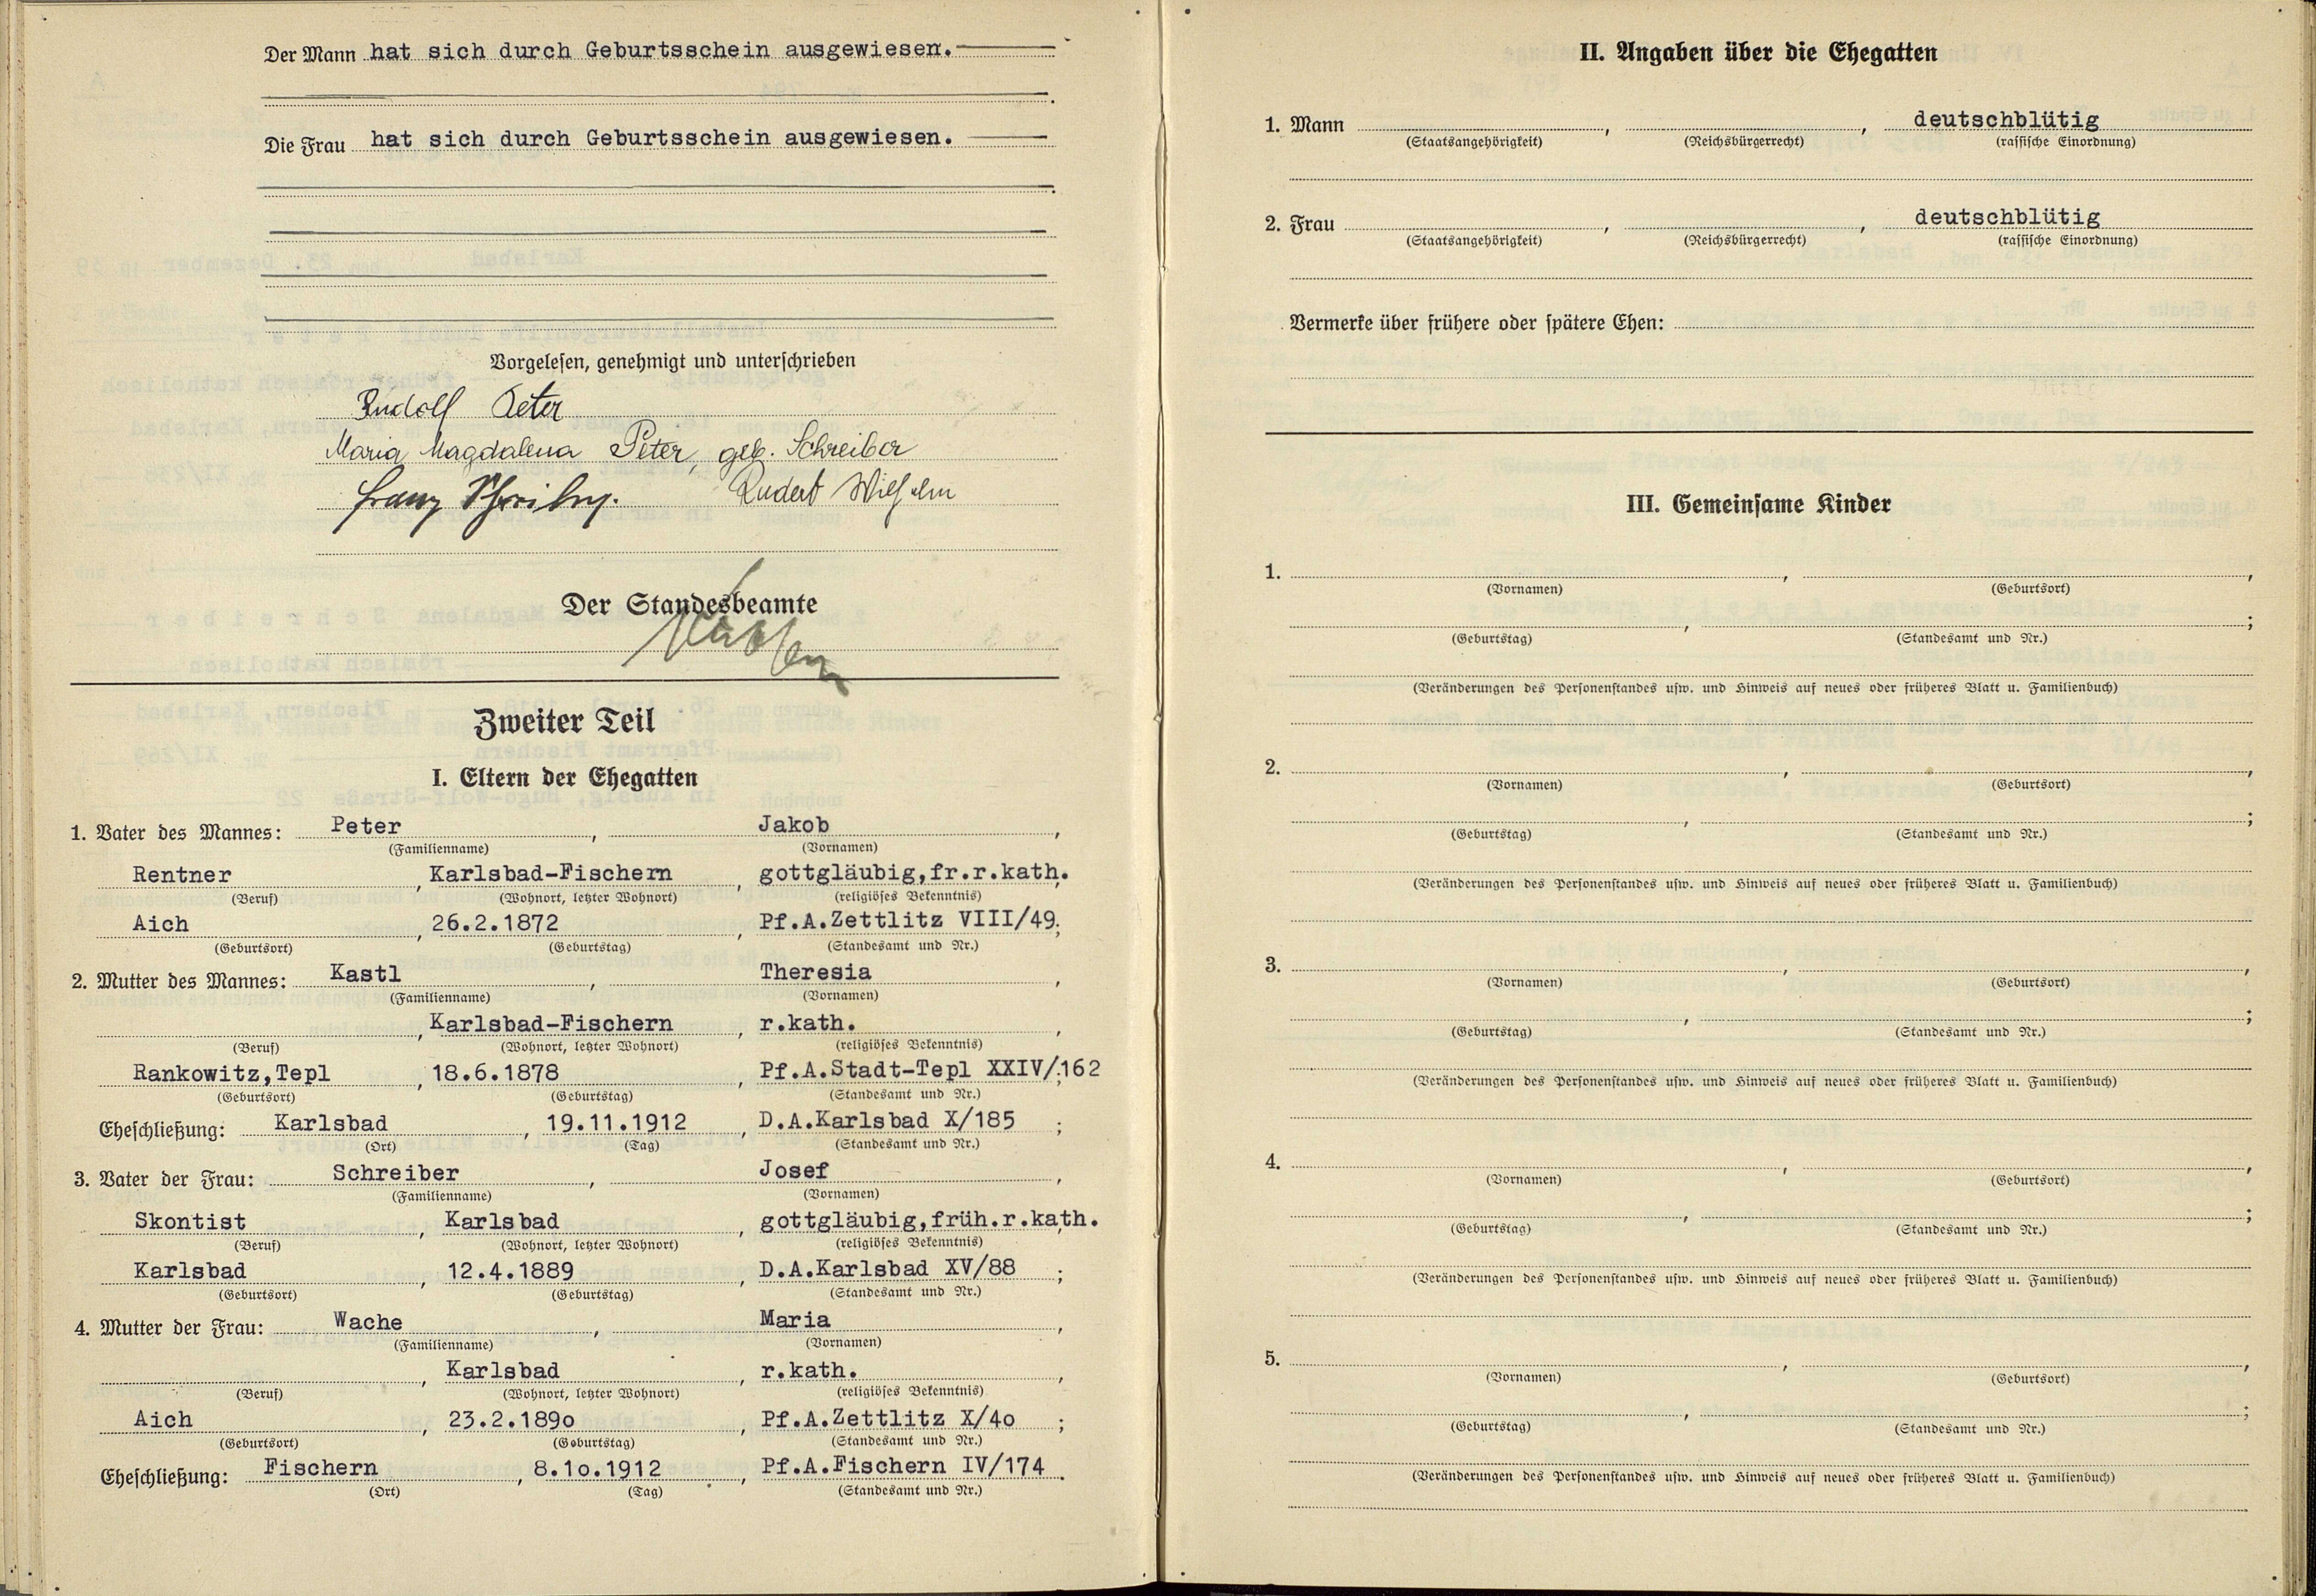 Der Mann hat sich durch Geburtsschein ausgewiesen.
Die Frau hat sich durch Geburtsschein ausgewiesen.
Vorgelesen, genehmigt und unterschrieben
Rudolf Peter
Maria Magdalena Peter, geb. Schreiber
Franz Schreiber. Rudert Wilhelm
Der Standesbeamte
Zweiter Teil
I. Eltern der Ehegatten
1. Vater des Mannes: Peter, Jakob,
(Familienname) (Vornamen)
Rentner, Karlsbad-Fischern, gottgläubig,fr.r.kath.
(Beruf) (Wohnort, letzter Wohnort) (religiöses Bekenntnis)
Aich, 26.2.1872, Pf.A.Zettlitz VIII/49;
(Geburtsort) (Geburtstag) (Standesamt und Nr.)
2. Mutter des Mannes: Kastl, Theresia,
(Familienname) (Vornamen)
, Karlsbad-Fischern, r.kath.,
(Beruf) (Wohnort, letzter Wohnort) (religiöses Bekenntnis)
Rankowitz,Tepl, 18.6.1878, Pf.A.Stadt-Tepl XXIV/162;
(Geburtsort) (Geburtstag) (Standesamt und Nr.)
Eheschließung: Karlsbad, 19.11.1912, D.A.Karlsbad X/185;
(Ort) (Tag) (Standesamt und Nr.)
3. Vater der Frau: Schreiber, Josef,
(Familienname) (Vornamen)
Skontist, Karlsbad, gottgläubig,früh.r.kath.
(Beruf) (Wohnort, letzter Wohnort) (religiöses Bekenntnis)
Karlsbad, 12.4.1889, D.A.Karlsbad XV/88;
(Geburtsort) (Geburtstag) (Standesamt und Nr.)
4. Mutter der Frau: Wache, Maria,
(Familienname) (Vornamen)
, Karlsbad, r.kath.,
(Beruf) (Wohnort, letzter Wohnort) (religiöses Bekenntnis)
Aich, 23.2.189o, Pf.A.Zettlitz X/4o;
(Geburtsort) (Geburtstag) (Standesamt und Nr.)
Eheschließung: Fischern, 8.1o.1912, Pf.A.Fischern IV/174.
(Ort) (Tag) (Standesamt und Nr.)
II. Angaben über die Ehegatten
1. Mann , , deutschblütig
(Staatsangehörigkeit) (Reichsbürgerrecht) (rassische Einordnung)
2. Frau , , deutschblütig
(Staatsangehörigkeit) (Reichsbürgerrecht) (rassische Einordnung)
Vermerke über frühere oder spätere Ehen:
III. Gemeinsame Kinder
1. , ,
(Vornamen) (Geburtsort)
, ;
(Geburtstag) (Standesamt und Nr.)
(Veränderungen des Personenstandes usw. und Hinweis auf neues oder früheres Blatt u. Familienbuch)
2. , ,
(Vornamen) (Geburtsort)
, ;
(Geburtstag) (Standesamt und Nr.)
(Veränderungen des Personenstandes usw. und Hinweis auf neues oder früheres Blatt u. Familienbuch)
3. , ,
(Vornamen) (Geburtsort)
, ;
(Geburtstag) (Standesamt und Nr.)
(Veränderungen des Personenstandes usw. und Hinweis auf neues oder früheres Blatt u. Familienbuch)
4. , ,
(Vornamen) (Geburtsort)
, ;
(Geburtstag) (Standesamt und Nr.)
(Veränderungen des Personenstandes usw. und Hinweis auf neues oder früheres Blatt u. Familienbuch)
5. , ,
(Vornamen) (Geburtsort)
, ;
(Geburtstag) (Standesamt und Nr.)
(Veränderungen des Personenstandes usw. und Hinweis auf neues oder früheres Blatt u. Familienbuch)